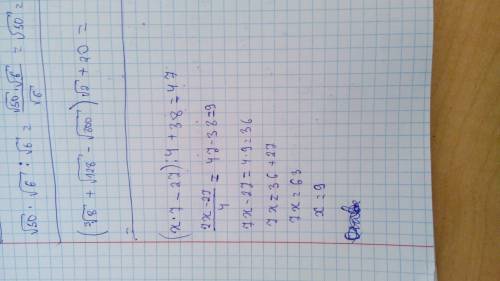 √50 · √6 : √6 = (√50 · √6)/√6 = √50 =
(³√8 + √128 - √200)√2 + 20 =
(x·7 - 27):4 + 38 = 47
(7x - 27)/4 = 47 - 38 = 9
7x - 27 = 4·9 = 36
7x = 36 + 27
7x = 63
x = 9